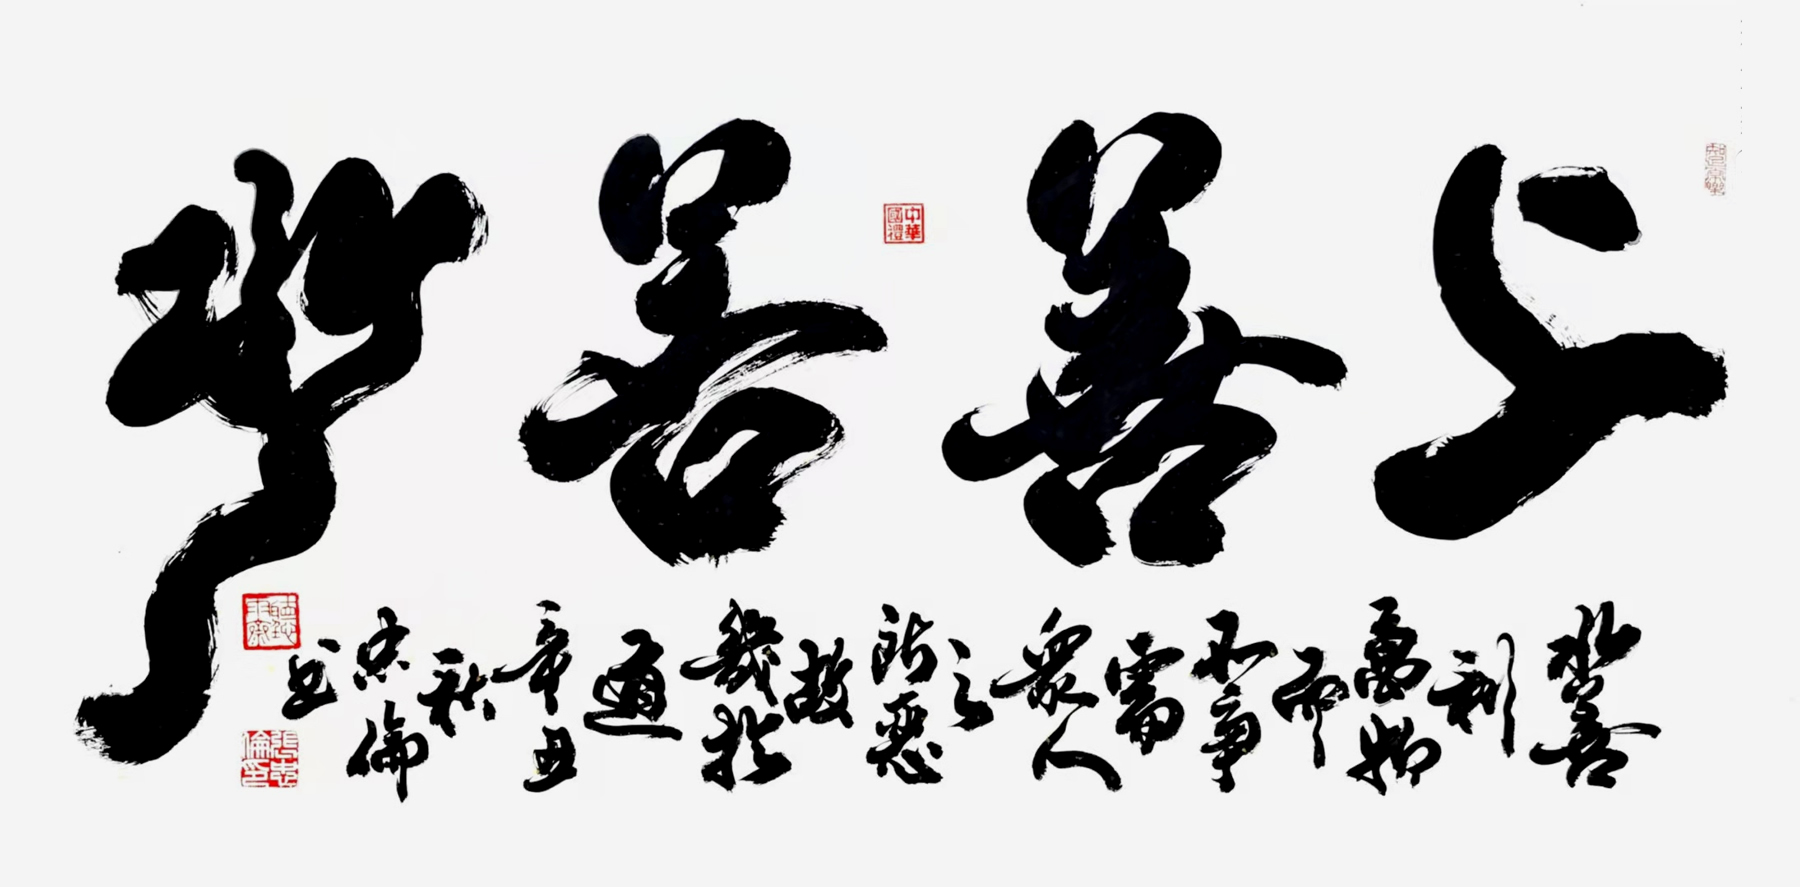 上善若水
水善利萬物而不爭處衆人之所惡故幾於道
辛丑秋忠倫書
中華國禮
張忠倫印